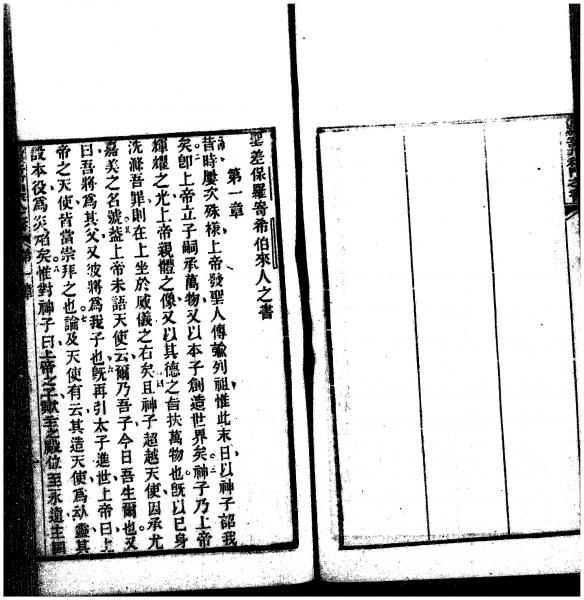 聖差保羅寄希伯來人之書
第一章
昔時屢次殊樣上帝發聖人傳諭列祖惟此末日以神子詔我
矣卽上帝立子嗣承萬物又以本子創造世界矣神子乃上帝
輝耀之光上帝親體之像又以其德之言扶萬物也旣以己身
洗滌吾罪則在上坐於威儀之右矣且神子超越天使因承尤
嘉美之名號葢上帝未語天使云爾乃吾子今日吾生爾也又
曰吾將爲其父又彼將爲我子也旣再引太子進世上帝曰上
帝之天使皆當崇拜之也論及天使有云其造天使爲靈其
設本役爲炎焰矣惟對神子曰上帝之子歟至之殿位至永遠主國